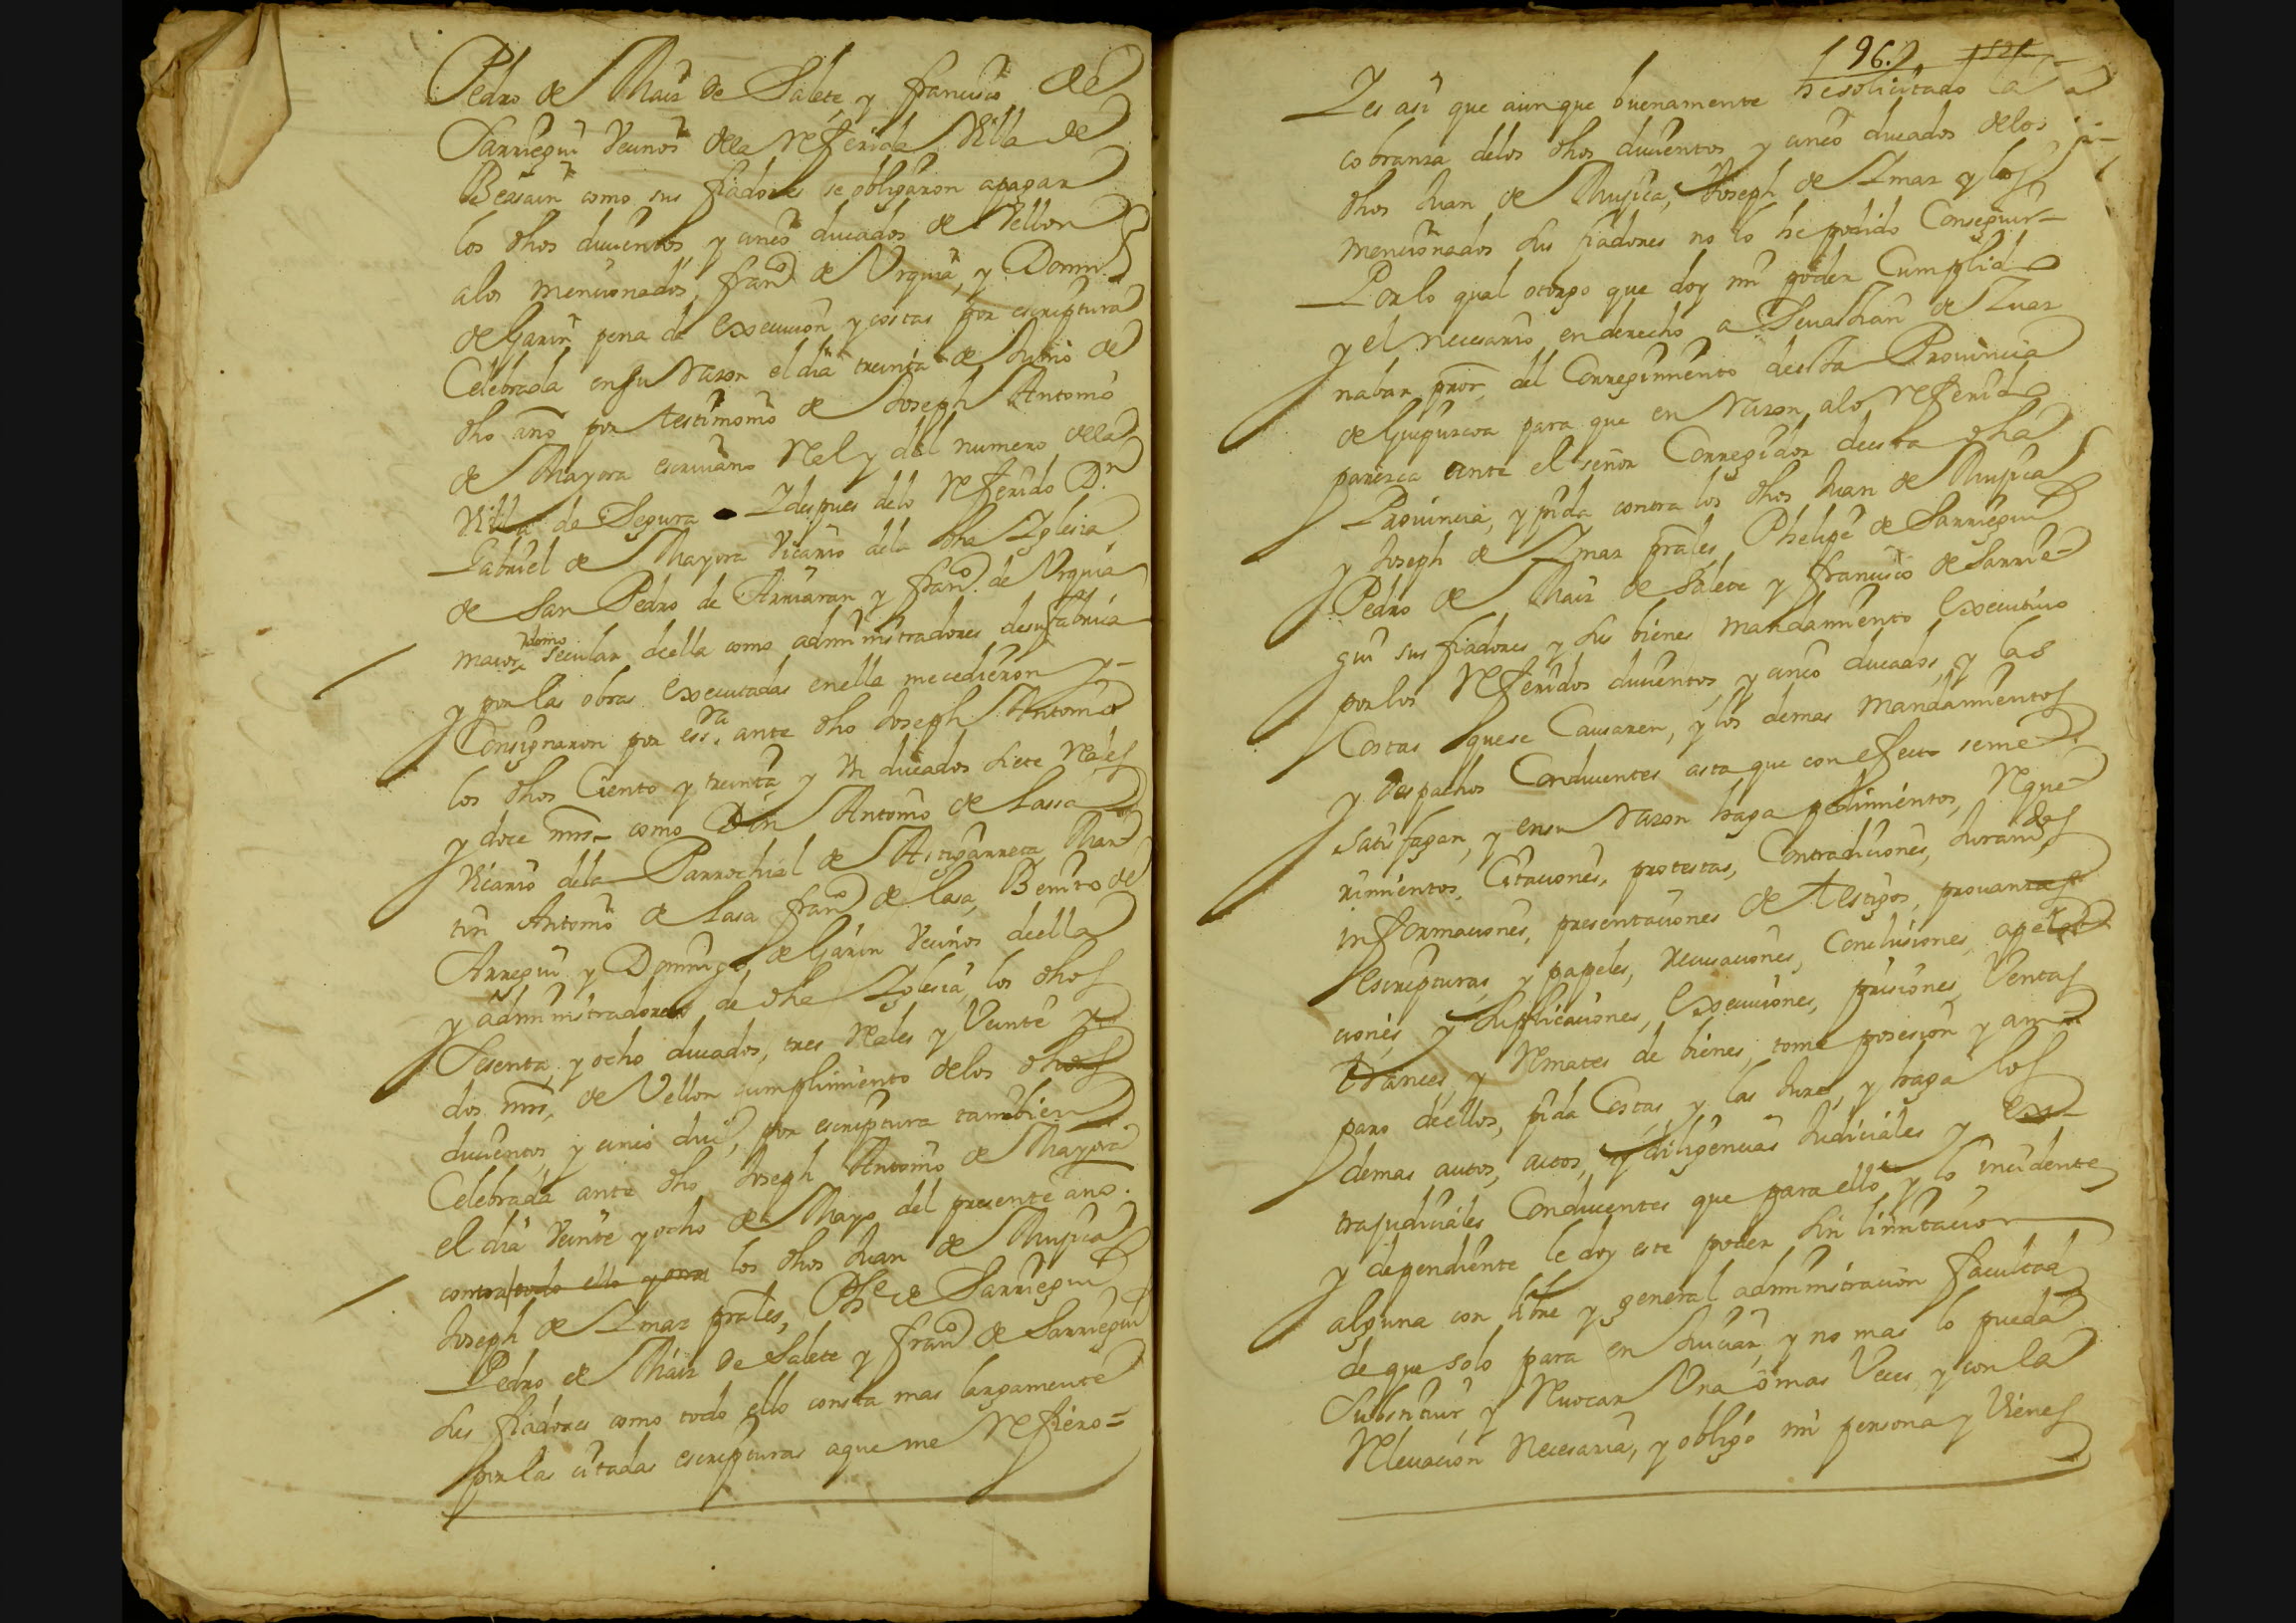 Pedro de Maiz de Salete, y francisco de
Sarriegui Vecinos dela referida Villa de
Beasain como sus fiadores se obligaron apagar
los dhos ducientos y cinco ducados de Vellon
alos mencionados franco de Vrquia, y Domingo
de Garin pena de execucion y costas por escriptura
Celebrada ensu razon el dia treinta de Junio de
dho año por testimonio de Joseph Antonio
de Mayora escriuano Rel y del numero dela
Villa de Segura Y despues delo referido Dn
Gabriel de Mayora Vicario dela dha Yglesia
de San Pedro de Arriaran y franco de Vrquia
maiordomo secular deella como administradores desu fabrica
y por las obras executadas enella mecedieron y
Consignaron por essra ante dho Joseph Antonio
los dhos Ciento y treinta y Vn ducados siete Rales
y doce mrs como Don Antonio de Lassa
Vicario dela Parrochial de Astigarreta Mar
tin Antonio de Lasa franco de Lasa, Benito de
Arregui y Domingo de Garin Vecinos deella
y administradores de dha Yglesia, los dhos
Sesenta y ocho ducados, tres Rales y Veinte y
dos mrs, de Vellon cumplimiento delos dhos
ducientos y cinco ducs, por escriptura tambien
Celebrada ante dho Joseph Antonio de Mayora
el dia Veinte y ocho de Mayo del presente año.
contra todo ello los dhos Juan de Mujica
Joseph de Ymaz prales, Phe de Sarriegui
Pedro de Maiz de Salete y franco de Sarriegui
sus fiadores como todo ello consta mas largamente
por las citadas escripturas aque me refiero=
196.
Y es asi que aunque buenamente he solicitado la
cobranza delos dhos ducientos y cinco ducados delos
dhos Juan de Mujica, Joseph de Ymaz y los
mencionados sus fiadores no lo he podido Conseguir
Por lo qual otorgo que doy mi poder Cumplido
y el necesario en derecho a Seuastian de Zuaz
nabar, pror del Corregimiento deesta Prouincia
de Guipuzcoa para que en razon alo referido
parezca ante el señor Corregidor deesta dha
Prouincia, y pida contra los dhos Juan de Mujica
y Joseph de Ymaz prales, Phelipe de Sarriegui
Pedro de Maiz de Salete y francisco de Sarrie
gui sus fiadores y sus bienes mandamiento executiuo
por los referidos ducientos y cinco ducados, y las
Costas quese Causaren, y los demas mandamientos
y despachos Conducentes asta que con efecto seme
satisfagan, y ensu razon haga pedimientos, reque
rimientos, Citaciones, protestas, Contradiciones, Juramtos
informaciones, presentaciones de testigos, prouanzas
escripturas, y papeles, recusaciones, Conclusiones, apela
ciones, y suplicaciones, execuciones, prisiones, Ventas
trances, y remates de bienes, tome posesion y am
paro deellos, pida Costas, y las Jure, y haga los
demas autos, actos, y diligencias Judiciales y ex
trajudiciales Conducentes que para ello, y lo incidente
y dependiente le doy este poder sin limitacion
alguna con libre y general administracion facultad
de que solo para en Juiciar, y no mas lo pueda
Substituir, y reuocar Vna o mas Veces, y con la
releuacion necesaria, y obligo mi persona y Vienes